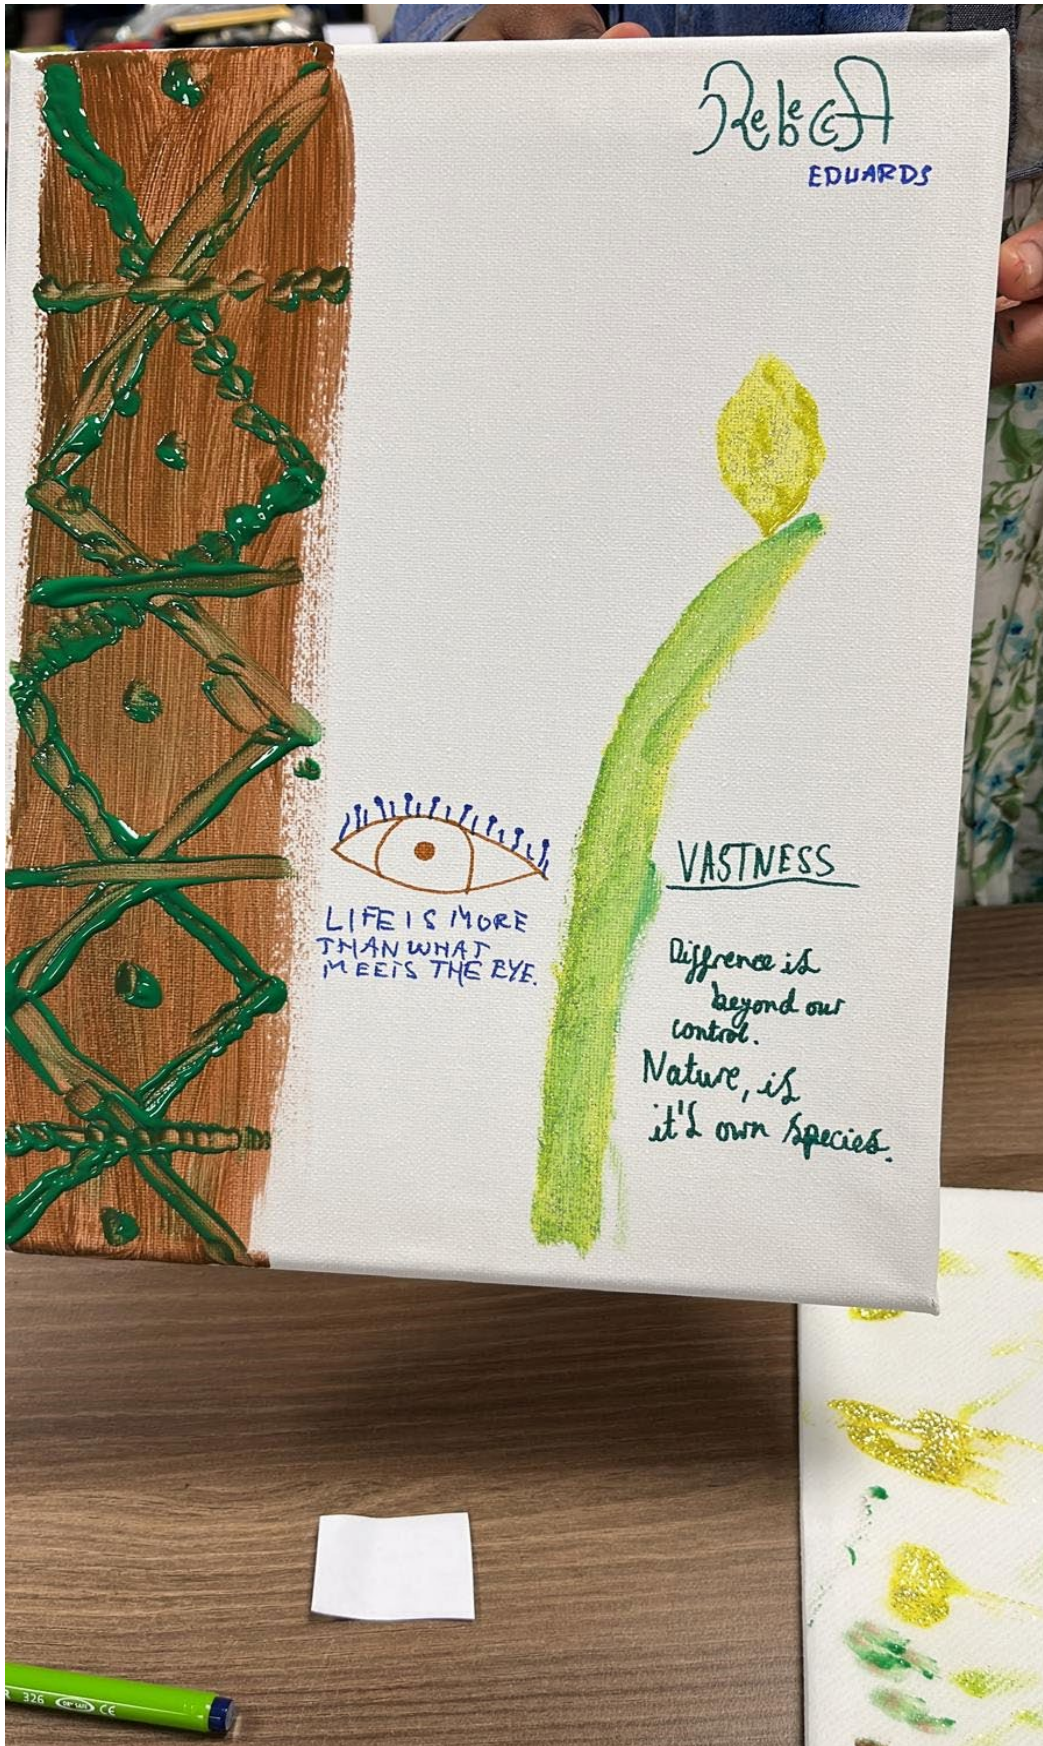 RebeccA
EDWARDS
LIFE IS MORE
THAN WHAT
MEETS THE EYE.
VASTNESS
Diffrence is
beyond our
control.
Nature, is
it's own species.
326 CE